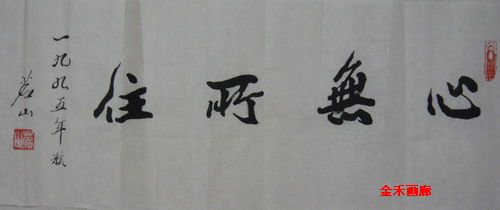 心無所住
一九九五年秋
茗山
金禾画廊